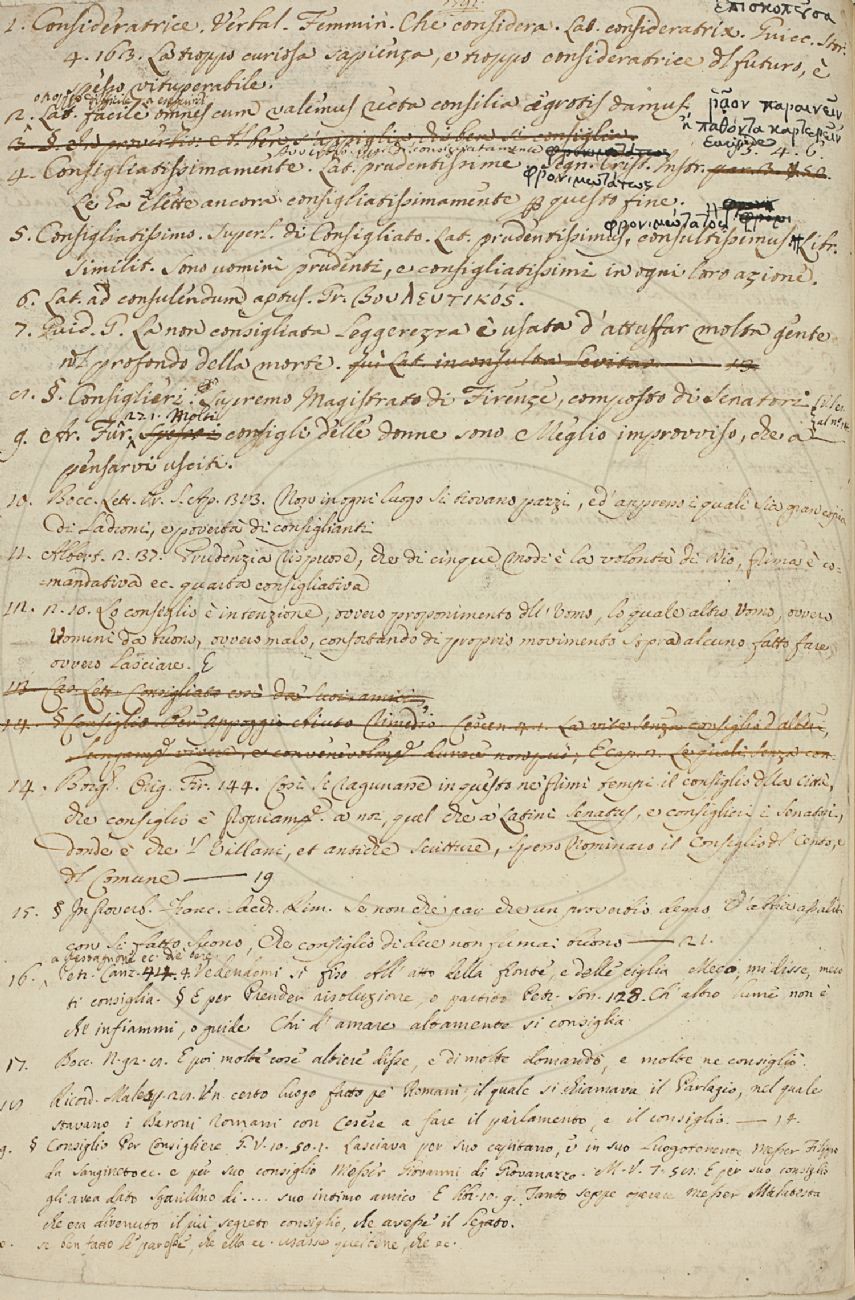 ἐπισκοπεῦσα
1. Consideratrice. Verbal. Femmin. Che considera. Lat. consideratrix. Guicc. Stor.
4. 163. La troppo curiosa sapienza, e troppo consideratrice del futuro, è
spesso vituperabile.
2. Lat. facile omnes cum valemus recta consilia ægrotis damus. ῥᾷον παραινεῖν
ἢ παθόντα καρτερεῖν
3. §. In proverbio si consiglia.
4. Consigliatissimamente. Lat. prudentissime φρονιμωτάτως Segn. Crist. Instr.
Le ha elette ancora consigliatissimamente per questo fine.
φρονιμώτατος
5. Consigliatissimo. Superl. di Consigliato. Lat. prudentissimus, consultissimus Libr.
Similit. Sono uomini prudenti, e consigliatissimi in ogni loro azione.
6. Lat. ad consulendum aptus. Gr. βουλευτικός.
7. Guid. G. La non consigliata leggerezza è usata d'attuffar molta gente
nel profondo della morte. qui Lat. inconsulta levitas 19
§. Consiglieri. Supremo Magistrato di Firenze, composto di Senatori
221. Molti
9. Ar. Fur. Spessi consigli delle donne sono Meglio improvviso, che a
pensarvi usciti.
10. Bocc. Lett. Pr. S. Ap. 313. Non in ogni luogo si trovano pazzi, ed' appresso i quali sia gran copia
di Ladroni, e povertà di consiglianti
11. Albert. 2. 37. Prudenzia rispuose, che di cinque modi è la volontà di Dio, prima è co-
mandativa ec. quarta consigliativa
12. 10. Lo consiglio è intenzione, ovvero proponimento dell'Uomo, lo quale altro Uomo, ovvero
Uomini da buono, ovvero malo, confortando di proprio movimento sopra alcuno fatto fare,
ovvero lasciare. E
13 Cas. Lett. Consigliato così da' suoi amici
14. § Consiglio Per Appoggio Aiuto Rimedio Cresc. 4. 1. La vite senza consiglio d'albori,
2. Le quali senza con-
14. Borgh. Orig. Fir. 144. Così si ragunasse in questo ne' primi tempi il consiglio della Città,
che consiglio è propriamente a noi, quel che a' Latini Senatus, e consiglieri i Senatori,
donde è che 'l Villani, et antiche scritture, spesso nominano il Consiglio del Cento, e
del Comune — 19
15. § In Proverb. Franc. Sacch. Rim. Se non che par che un proverbio degno
con si fatto suono, Che consiglio di due non fu mai buono — 21.
16. Petr. Canz. 4. Vedendomi sì fiso All' atto della fronte, e delle ciglia Meco, mi disse, meco
ti consiglia. § E per Prender risoluzione, o partito Petr. Son. 128. Ch' altro lume non è
che infiammi, o guide Chi d'amare altamente si consiglia
17. Bocc. N. 92. E poi molte cose altiere disse, e di molte domandò, e molte ne consigliò
Ricord. Malesp. 20. Un certo luogo fatto pe' Romani, il quale si chiamava il Parlagio, nel quale
stavano i Baroni Romani con Cesere a fare il parlamento, e il consiglio. — 14.
§ Consiglio Per Consigliere G. V. 10. 50. 1. Lasciava per suo capitano, e in suo Luogotenente Messer Filippo
da Sangineto ec. e per suo consiglio Messer Giovanni di Giovanazzo. M. V. 7. E per suo consiglio
gli avea dato Sgariglino di .... suo intimo amico E lib. 10. 9. Tanto seppe operare Messer Malatesta
che era divenuto il più segreto consiglio, che avesse il Legato.
se ben fatto le paresse, che ella ec. usasse